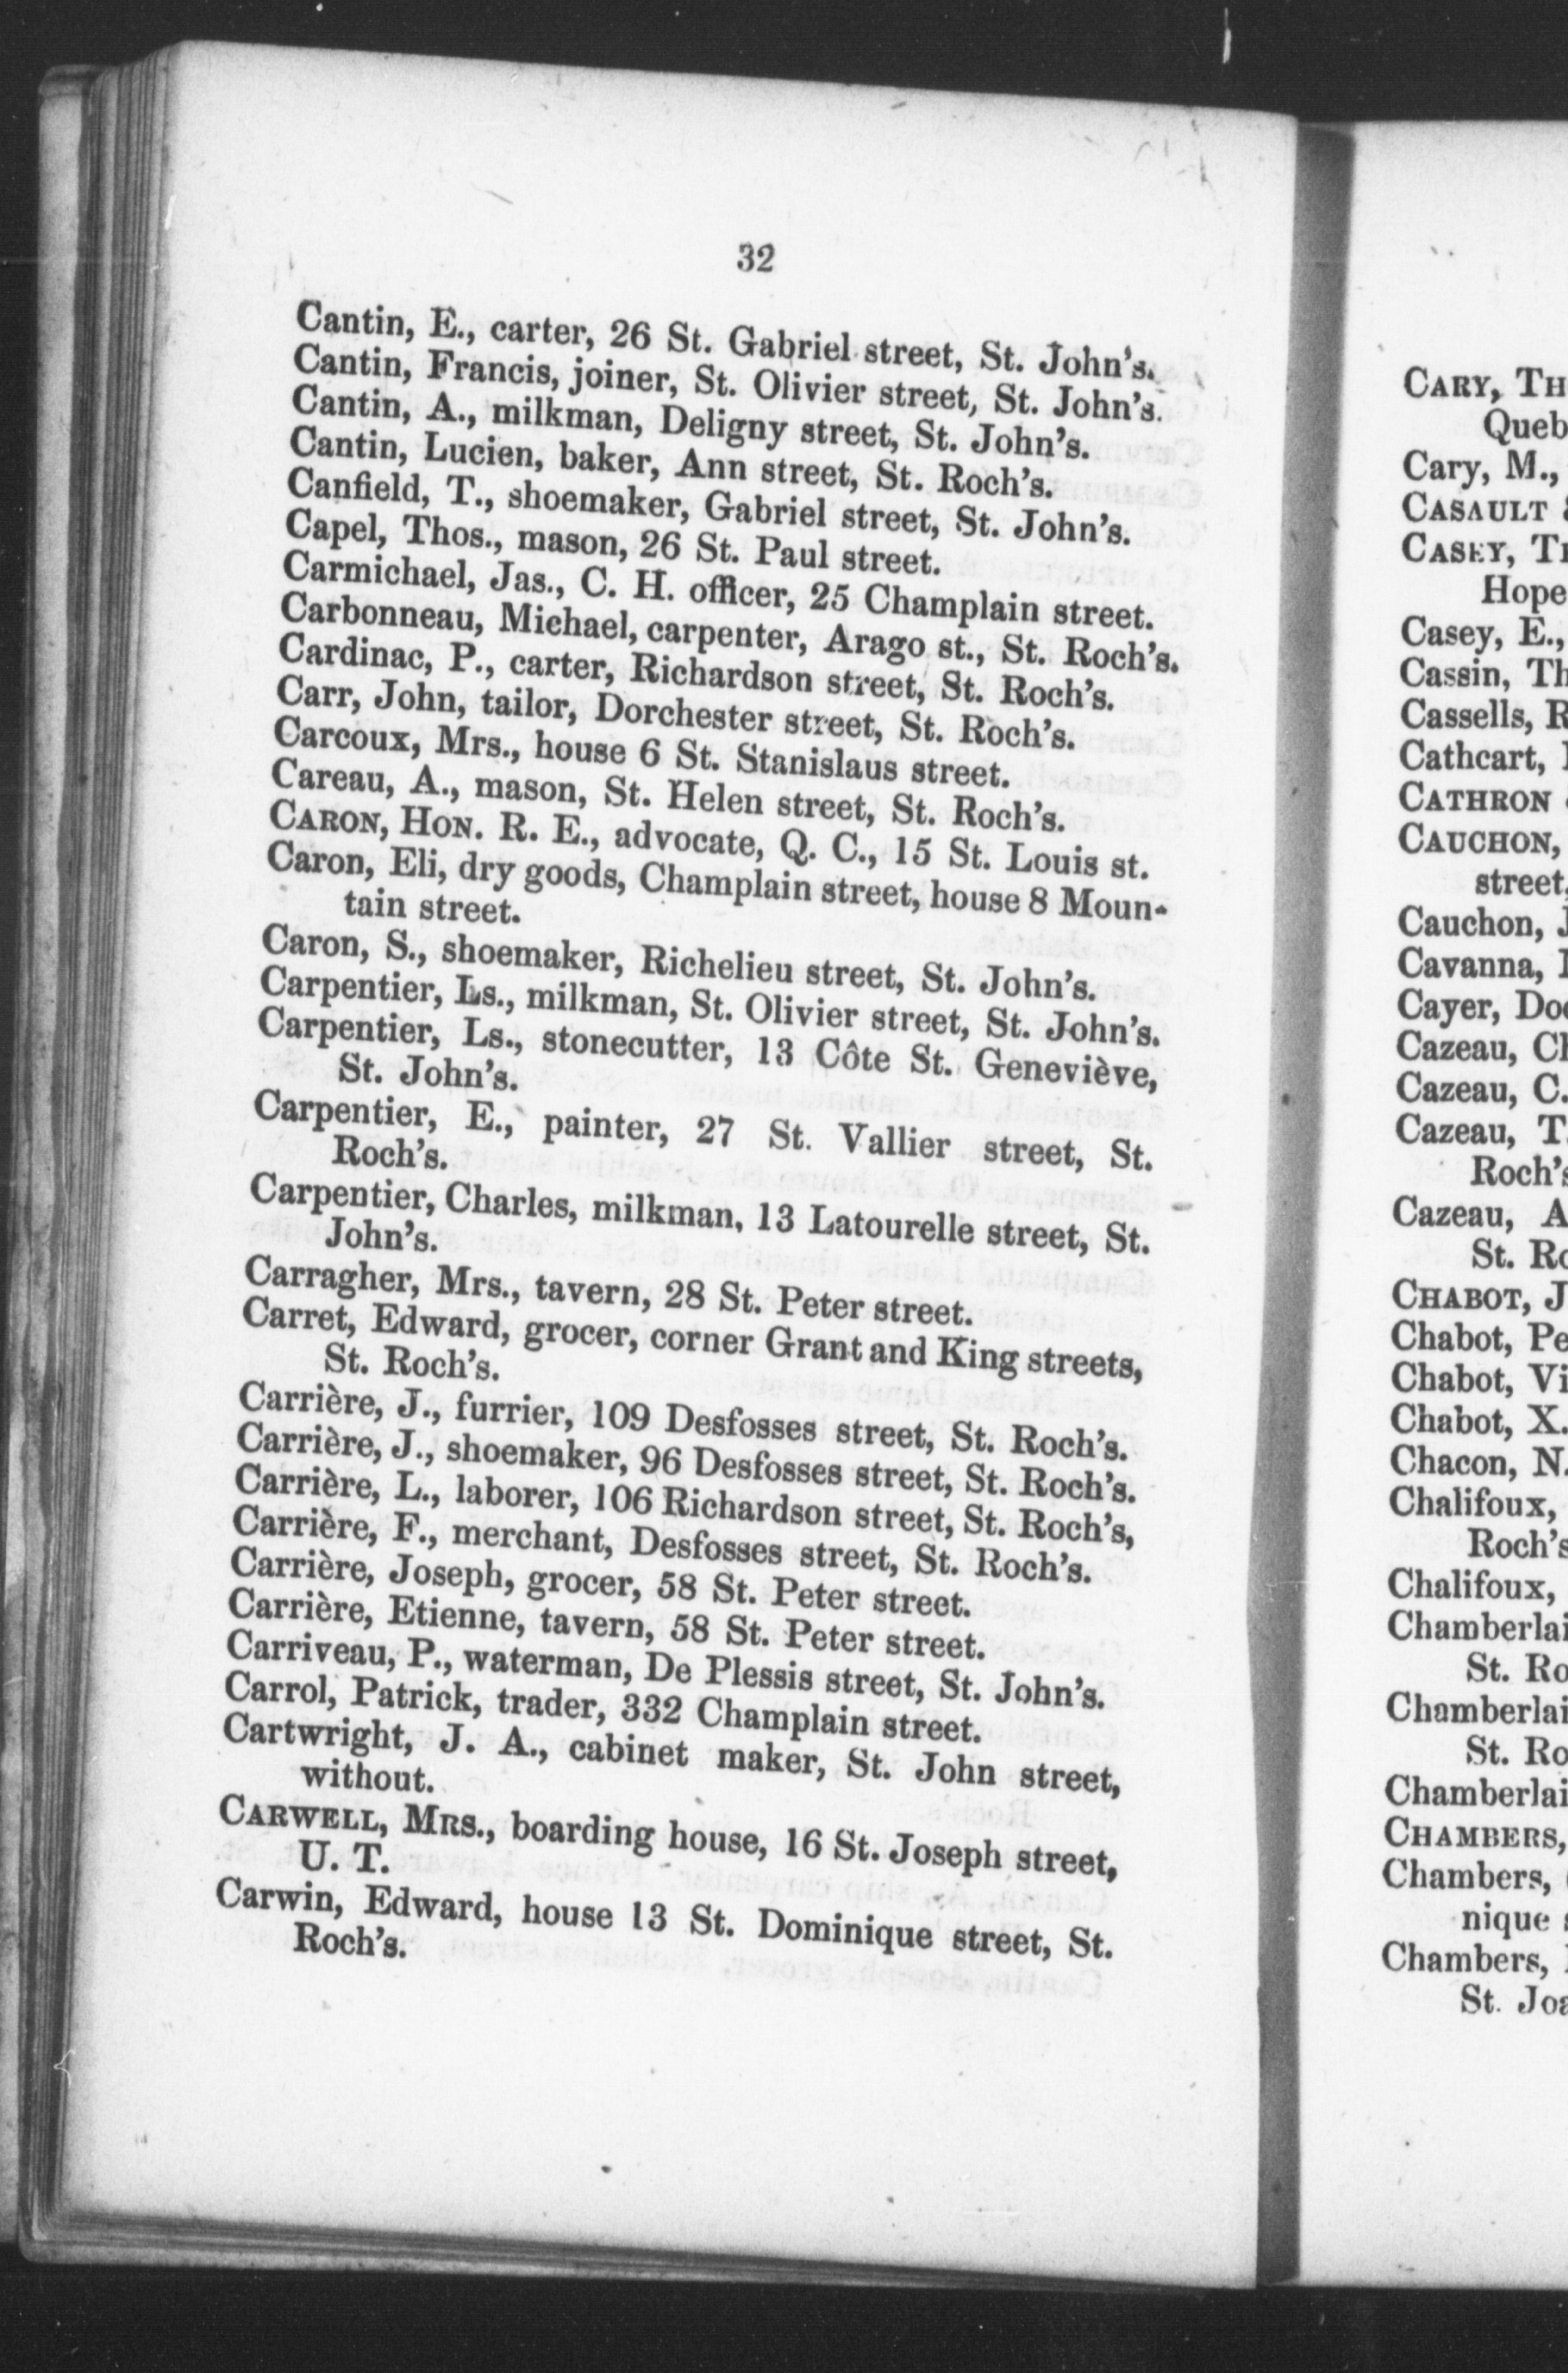 32
Cantin, E., carter, 26 St. Gabriel street, St. John's.
Cantin, Francis, joiner, St. Olivier street, St. John's.
Cantin, A., milkman, Deligny street, St. John's.
Cantin, Lucien, baker, Ann street, St. Roch's.
Canfield, T., shoemaker, Gabriel street, St. John's.
Capel, Thos., mason, 26 St. Paul street.
Carmichael, Jas., C. H. officer, 25 Champlain street.
Carbonneau, Michael, carpenter, Arago st., St. Roch's.
Cardinac, P., carter, Richardson street, St. Roch's.
Carr, John, tailor, Dorchester street, St. Roch's.
Carcoux, Mrs., house 6 St. Stanislaus street.
Careau, A., mason, St. Helen street, St. Roch's.
CARON, HON. R. E., advocate, Q. C., 15 St. Louis st.
Caron, Eli, dry goods, Champlain street, house 8 Moun-
tain street.
Caron, S., shoemaker, Richelieu street, St. John's.
Carpentier, Ls., milkman, St. Olivier street, St. John's.
Carpentier, Ls., stonecutter, 13 Côte St. Geneviève,
St. John's.
Carpentier, E., painter, 27 St. Vallier street, St.
Roch's.
Carpentier, Charles, milkman, 13 Latourelle street, St.
John's.
Carragher, Mrs., tavern, 28 St. Peter street.
Carret, Edward, grocer, corner Grant and King streets,
St. Roch's.
Carrière, J., furrier, 109 Desfosses street, St. Roch's.
Carrière, J., shoemaker, 96 Desfosses street, St. Roch's.
Carrière, L., laborer, 106 Richardson street, St. Roch's,
Carrière, F., merchant, Desfosses street, St. Roch's.
Carrière, Joseph, grocer, 58 St. Peter street.
Carrière, Etienne, tavern, 58 St. Peter street.
Carriveau, P., waterman, De Plessis street, St. John's.
Carrol, Patrick, trader, 332 Champlain street.
Cartwright, J. A., cabinet maker, St. John street,
without.
CARWELL, MRS., boarding house, 16 St. Joseph street,
U. T.
Carwin, Edward, house 13 St. Dominique street, St.
Roch's.
CARY, TH
Queb
Cary, M.,
CASAULT
CASEY, T
Hope
Casey, E.,
Cassin, Th
Cassells, R
Cathcart,
CATHRON
CAUCHON,
street,
Cauchon, J
Cavanna,
Cayer, Doc
Cazeau, Ch
Cazeau, C.
Cazeau, T.
Roch's
Cazeau, A
St. Ro
CHABOT, J
Chabot, Pe
Chabot, Vi
Chabot, X.
Chacon, N.
Chalifoux,
Roch's
Chalifoux,
Chamberlai
St. Ro
Chamberlai
St. Ro
Chamberlai
CHAMBERS,
Chambers,
nique
Chambers,
St. Joa